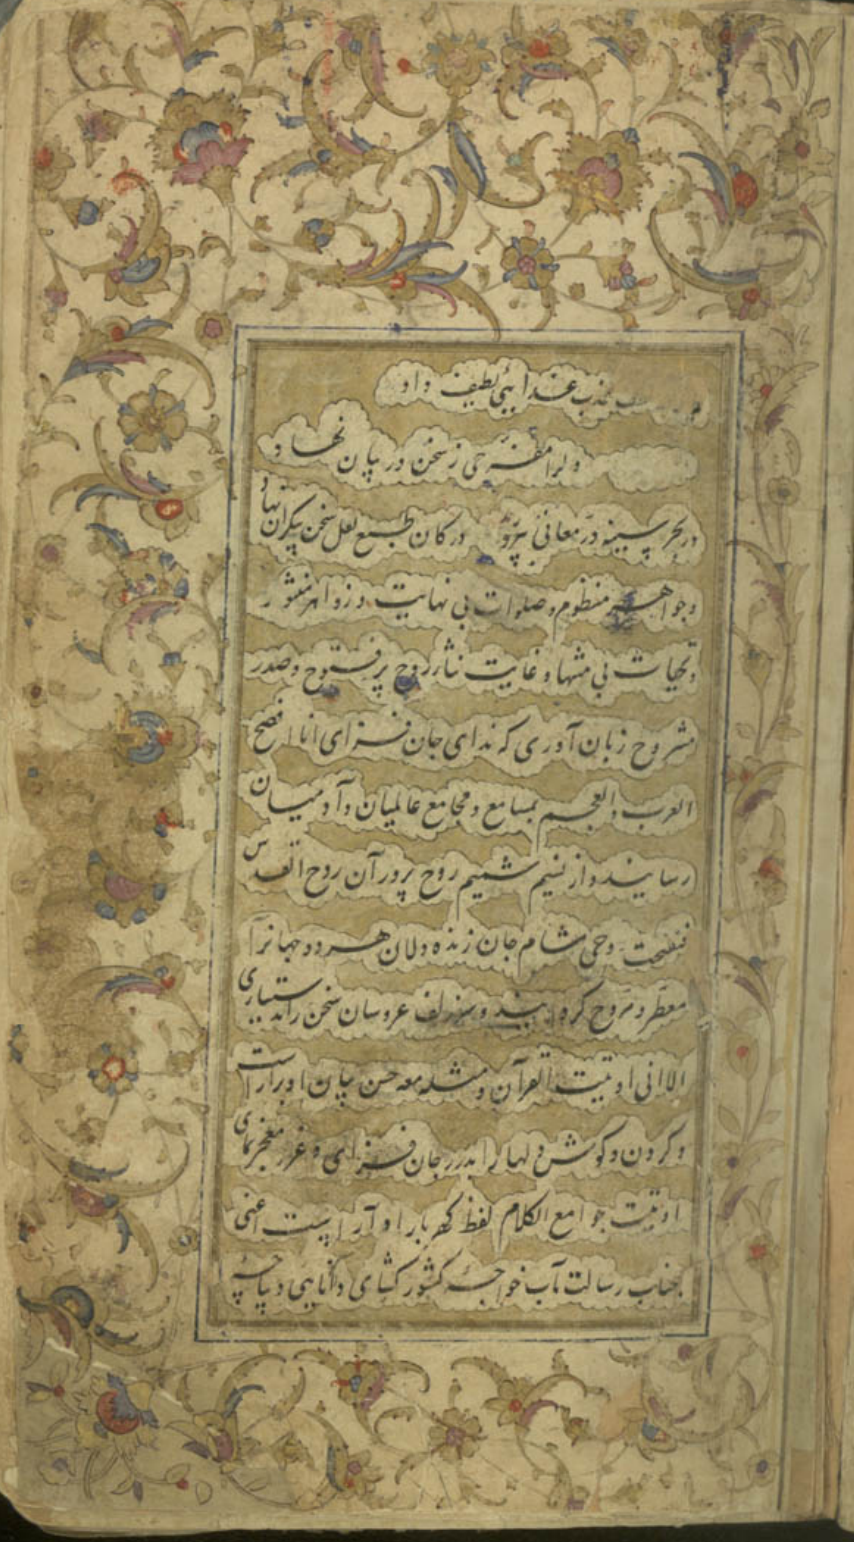 عذب غدایی لطیف داد
دلرا مفرحی ز سخن در بیان نهاد
در بحر سینه در معانی بپرورد در کان طبع لعل سخن بیکران نهاد
و جواهر منظوم و صلوات بی نهایت و زواهر منثور
و تحیات بی منتها و غایت نثار روح پر فتوح و صدر
مشروح زبان آوری که ندای جان فزای انا افصح
العرب والعجم بمسامع و مجامع عالمیان و آدمیان
رسانیده و از نسیم شمیم روح پرور آن روح القدس
نفخت روحی مشام جان زنده دلان هر دو جهانرا
معطر و مروح کرده و سر زلف عروسان سخن را بدستیاری
الا انی اوتیت القرآن و مثله معه حسن بیان او براراست
و کردن و کوش دلها را بدرر جان فزای و غرر معجز نمای
اوتیت جوامع الکلام لفظ کهربار او آراست اعنی
جناب رسالت مآب خواجه کشور کشای دانایی دیباچه